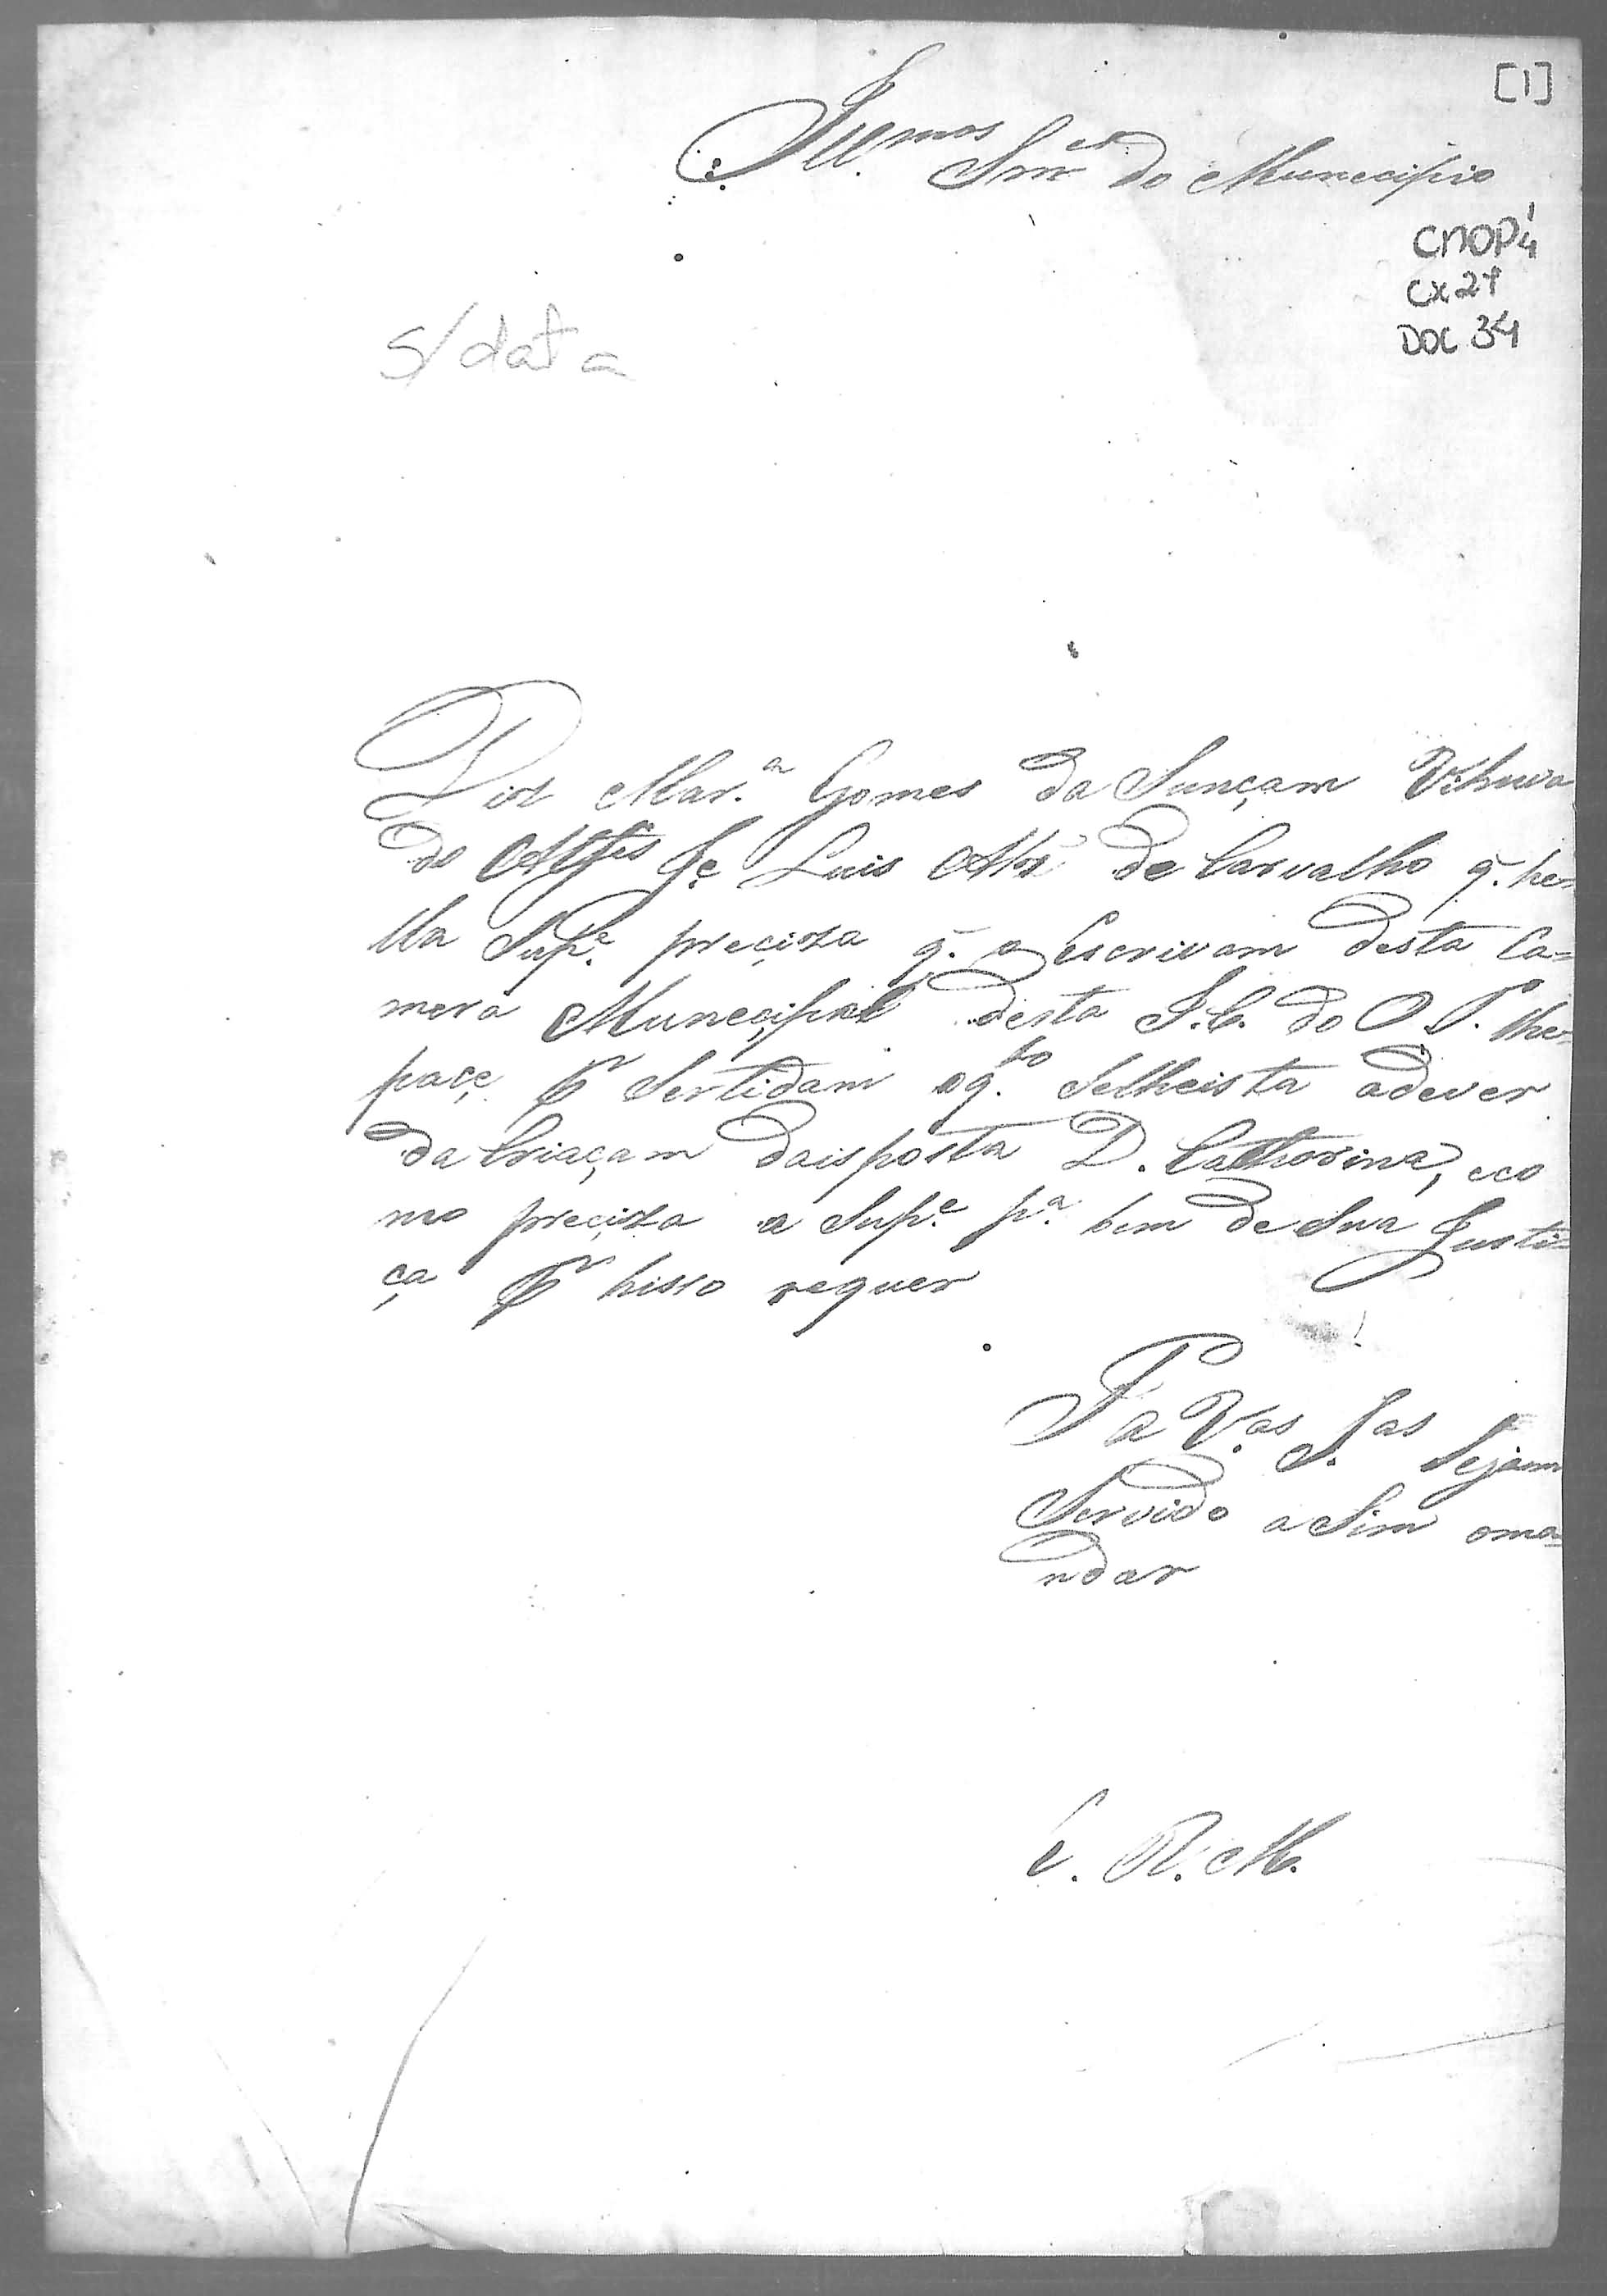 [1]
Ill.mos Snr.es do Municipio
CMOP
Cx 21
DOC 34
s/ data
Diz Mar.a Gomes da Sunçam Vihuva
do Alfes Je Luis Alz de Carvalho q. he=
lla Sup.e preçiza q. o Escrivam desta Ca=
mera Muneçipal desta I.C. do O P. lhe=
paçe Pr Sertidam o q.to Selheista adever
da Criaçam daisposta D. Catherina, eco
mo preçiza a Sup.e p.a bem de Sua Justi=
ça Pr hisso requer
P a V.as S.as Sejam
Servido aSim oma=
ndar
E. R. M.